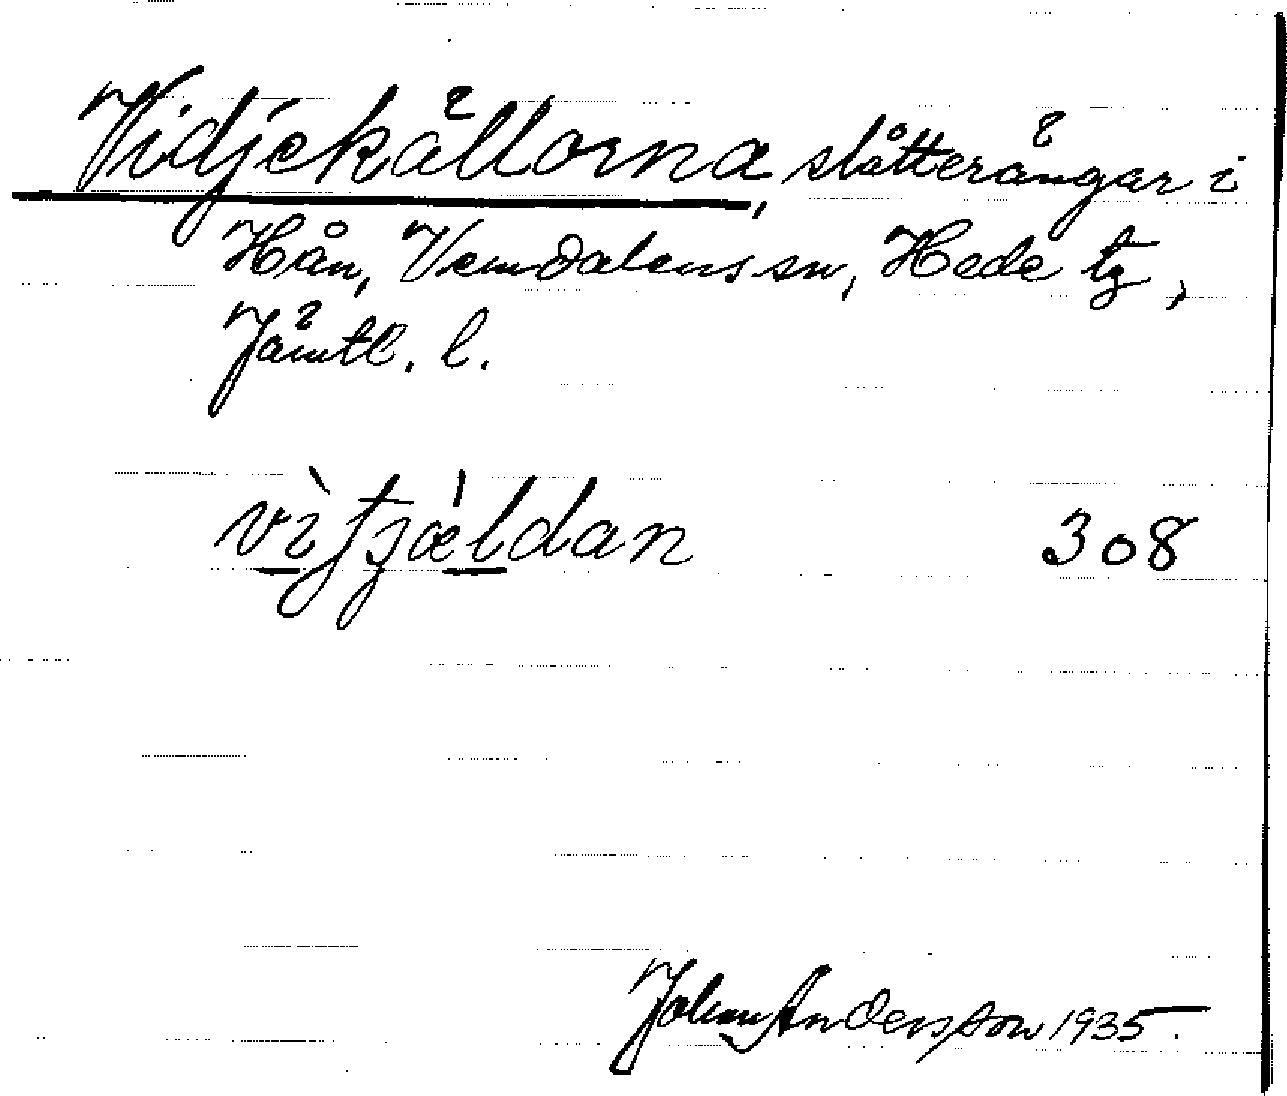 Vidjekällorna, slåtterängar i
Hån, Vemdalens sn, Hede tg,
Jämtl. l.
vìtjæ̀ldan 308
Johan Andersson 1935.